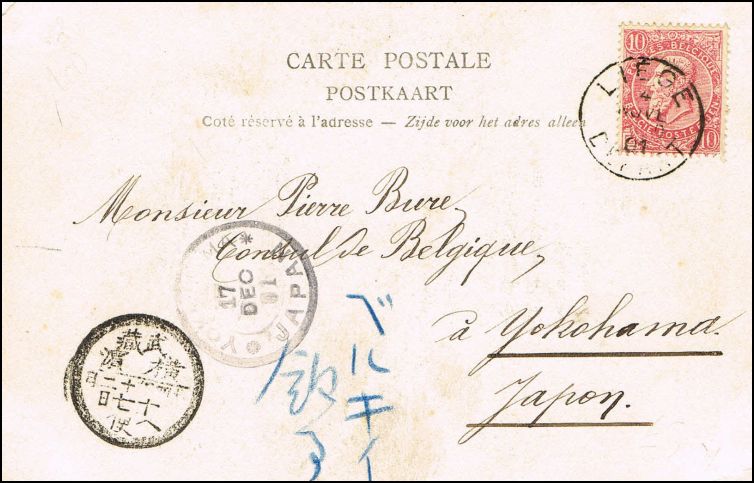 CARTE POSTALE
POSTKAART
Coté réservé à l'adresse — Zijde voor het adres alleen
10 10
LIÉGE
4
01
Monsieur Pierre Bure,
Consul de Belgique,
à Yokohama.
Japon.
17
DEC
01
JAPAN
ベルキー
武藏
横濱
十二月
十七日
十八便